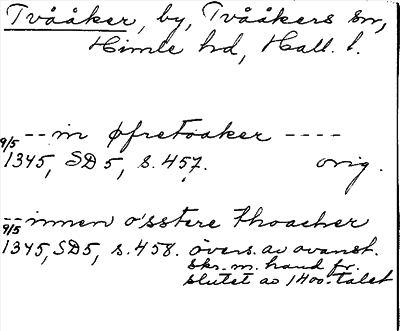 Tvååker, by, Tvååkers sn,
Himle hd, Hall. l.
-- in øfretoaker ----
9/5 1345, SD 5, s. 457. orig.
-- innen o'sstere thoacher
9/5 1345, SD 5, s. 458. övers. av ovanst.
skr. m. hand fr.
slutet av 1400-talet